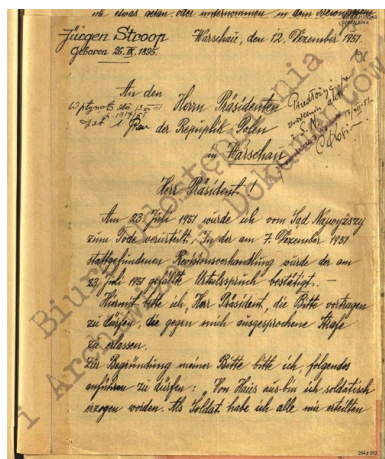 Jürgen Stroop
Geboren 26. IX. 1895.
Warschau, den 12. Dezember 1951.
An den
Herrn Präsidenten
der Republik Polen
in Warschau
Herr Präsident! —
Am 23. Juli 1951 wurde ich vom Sąd Najwyższy
zum Tode verurteilt. In der am 7. Dezember 1951
stattgefundenen Revisionsverhandlung wurde der am
23. Juli 1951 gefällte Urteilsspruch bestätigt. —
Hiermit bitte ich, Herr Präsident, die Bitte vortragen
zu dürfen, die gegen mich ausgesprochene Strafe
zu erlassen.
Zur Begründung meiner Bitte bitte ich, folgendes
anführen zu dürfen: „Von Haus aus bin ich soldatisch
erzogen worden. Als Soldat habe ich alle mir erteilten